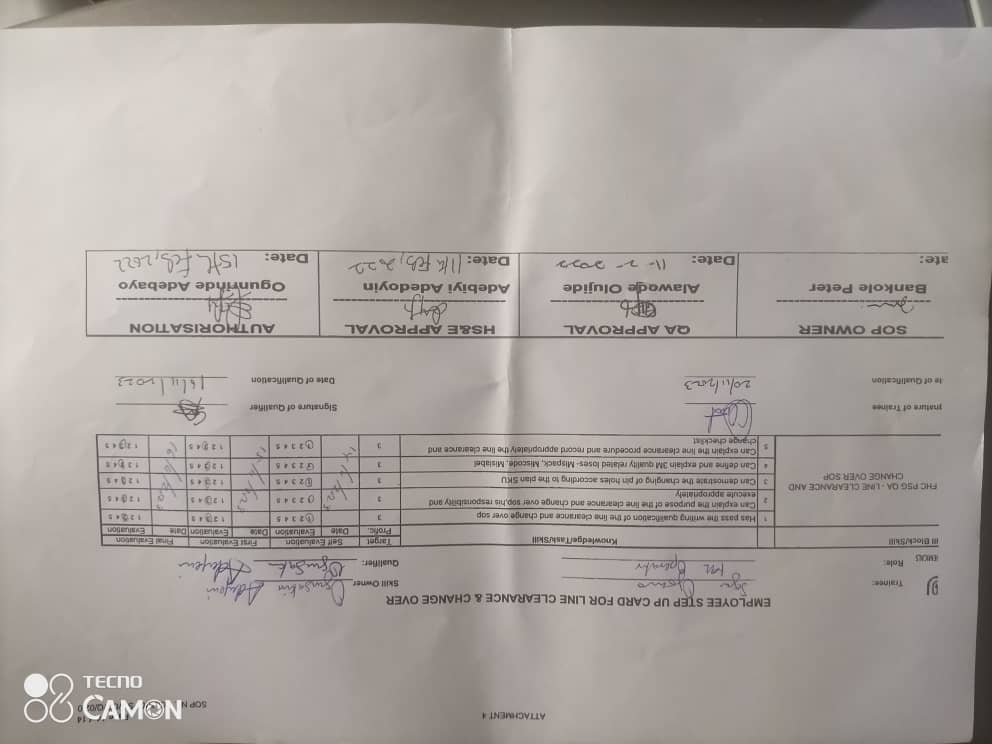 ATTACHMENT 4
SOP N
EMPLOYEE STEP UP CARD FOR LINE CLEARANCE & CHANGE OVER
Trainee:
Skill Owner Ogunsakin Adeyemi
Role: ML Operator
Qualifier: Ogunsakin Adeyemi
ill Block/Skill Knowledge/Task/Skill Target Self Evaluation First Evaluation Final Evaluation
Profic. Date Evaluation Date Evaluation Date Evaluation
FHC PSG QA - LINE CLEARANCE AND CHANGE OVER SOP
1 Has pass the writing qualification of the line clearance and change over sop 3 1 2 3 4 5 1 2 3 4 5 1 2 3 4 5
2 Can explain the purpose of the line clearance and change over sop,his responsibility and execute appropriately 3 1 2 3 4 5 1 2 3 4 5 1 2 3 4 5
3 Can demonstrate the changing of pin holes according to the plan SKU 3 1 2 3 4 5 1 2 3 4 5 1 2 3 4 5
4 Can define and explain 3M quality related loses- Mispack, Miscode, Mislabel 3 1 2 3 4 5 1 2 3 4 5 1 2 3 4 5
5 Can explain the line clearance procedure and record appropriately the line clearance and change checklist 3 1 2 3 4 5 1 2 3 4 5 1 2 3 4 5
gnature of Trainee
Signature of Qualifier
te of Qualification 20/11/2023
Date of Qualification 16/11/2023
SOP OWNER QA APPROVAL HS&E APPROVAL AUTHORISATION
Bankole Peter Alawode Olujide Adebiyi Adedoyin Ogunrinde Adebayo
ate: Date: 11-2-2022 Date: 11th Feb, 2022 Date: 15th Feb, 2022
TECNO
CAMON